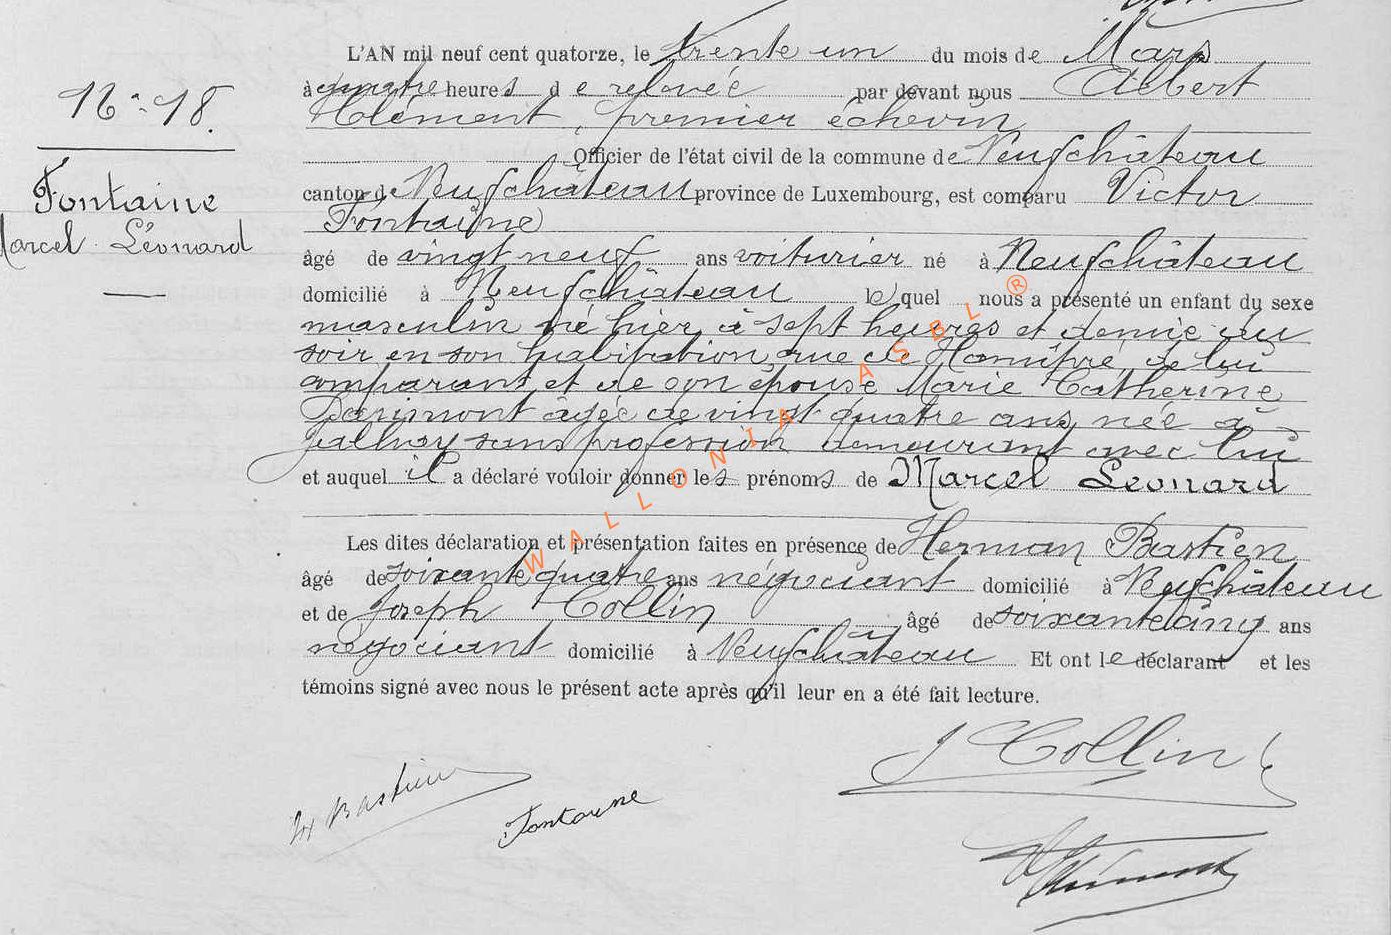 L'AN mil neuf cent quatorze, le trente un du mois de Mars
à quatre heures de relevée par devant nous Albert
Clément, premier échevin
Officier de l'état civil de la commune de Neufchâteau
canton de Neufchâteau province de Luxembourg, est comparu Victor
Fontaine
âgé de vingt neuf ans voiturier né à Neufchâteau
domicilié à Neufchâteau lequel nous a présenté un enfant du sexe
masculin né hier à sept heures et demie du
soir en son habitation, rue de Hamipré, de lui
comparant et de son épouse Marie Catherine
Barimont âgée de vingt quatre ans, née à
Jalhay sans profession demeurant avec lui
et auquel il a déclaré vouloir donner les prénoms de Marcel Léonard
Les dites déclaration et présentation faites en présence de Herman Bastien
âgé de soixante quatre ans négociant domicilié à Neufchâteau
et de Joseph Collin âgé de soixante cinq ans
négociant domicilié à Neufchâteau Et ont le déclarant et les
témoins signé avec nous le présent acte après qu'il leur en a été fait lecture.
N° 18.
Fontaine
Marcel Léonard
J Collin
H Bastien
Fontaine
Clément
WALLONIA ASBL ®